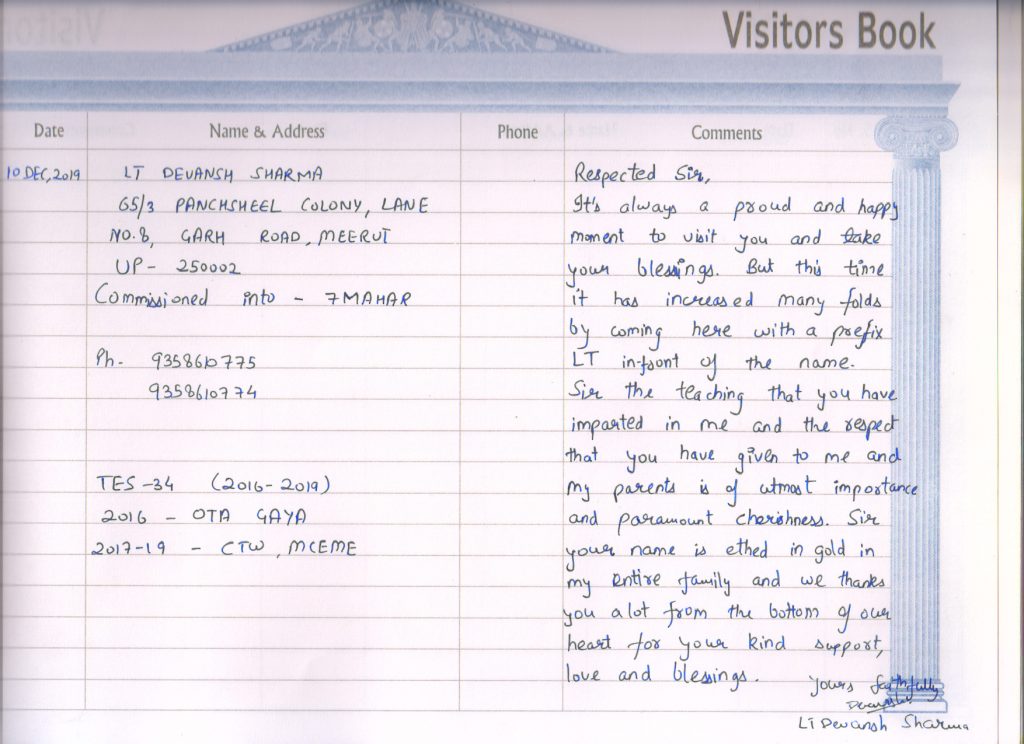 Visitors Book
Date Name & Address Phone Comments
10 DEC, 2019
LT DEVANSH SHARMA
65/3 PANCHSHEEL COLONY, LANE
NO. 8, GARH ROAD, MEERUT
UP - 250002
Commissioned into - 7 MAHAR
Ph. 9358610775
9358610774
TES - 34 (2016 - 2019)
2016 - OTA GAYA
2017-19 - CTW, MCEME
Respected Sir,
It's always a proud and happy
moment to visit you and take
your blessings. But this time
it has increased many folds
by coming here with a prefix
LT in-front of the name.
Sir the teaching that you have
imparted in me and the respect
that you have given to me and
my parents is of utmost importance
and paramount cherishness. Sir
your name is ethed in gold in
my entire family and we thanks
you a lot from the bottom of our
heart for your kind support,
love and blessings.
Yours faithfully
Lt Devansh Sharma